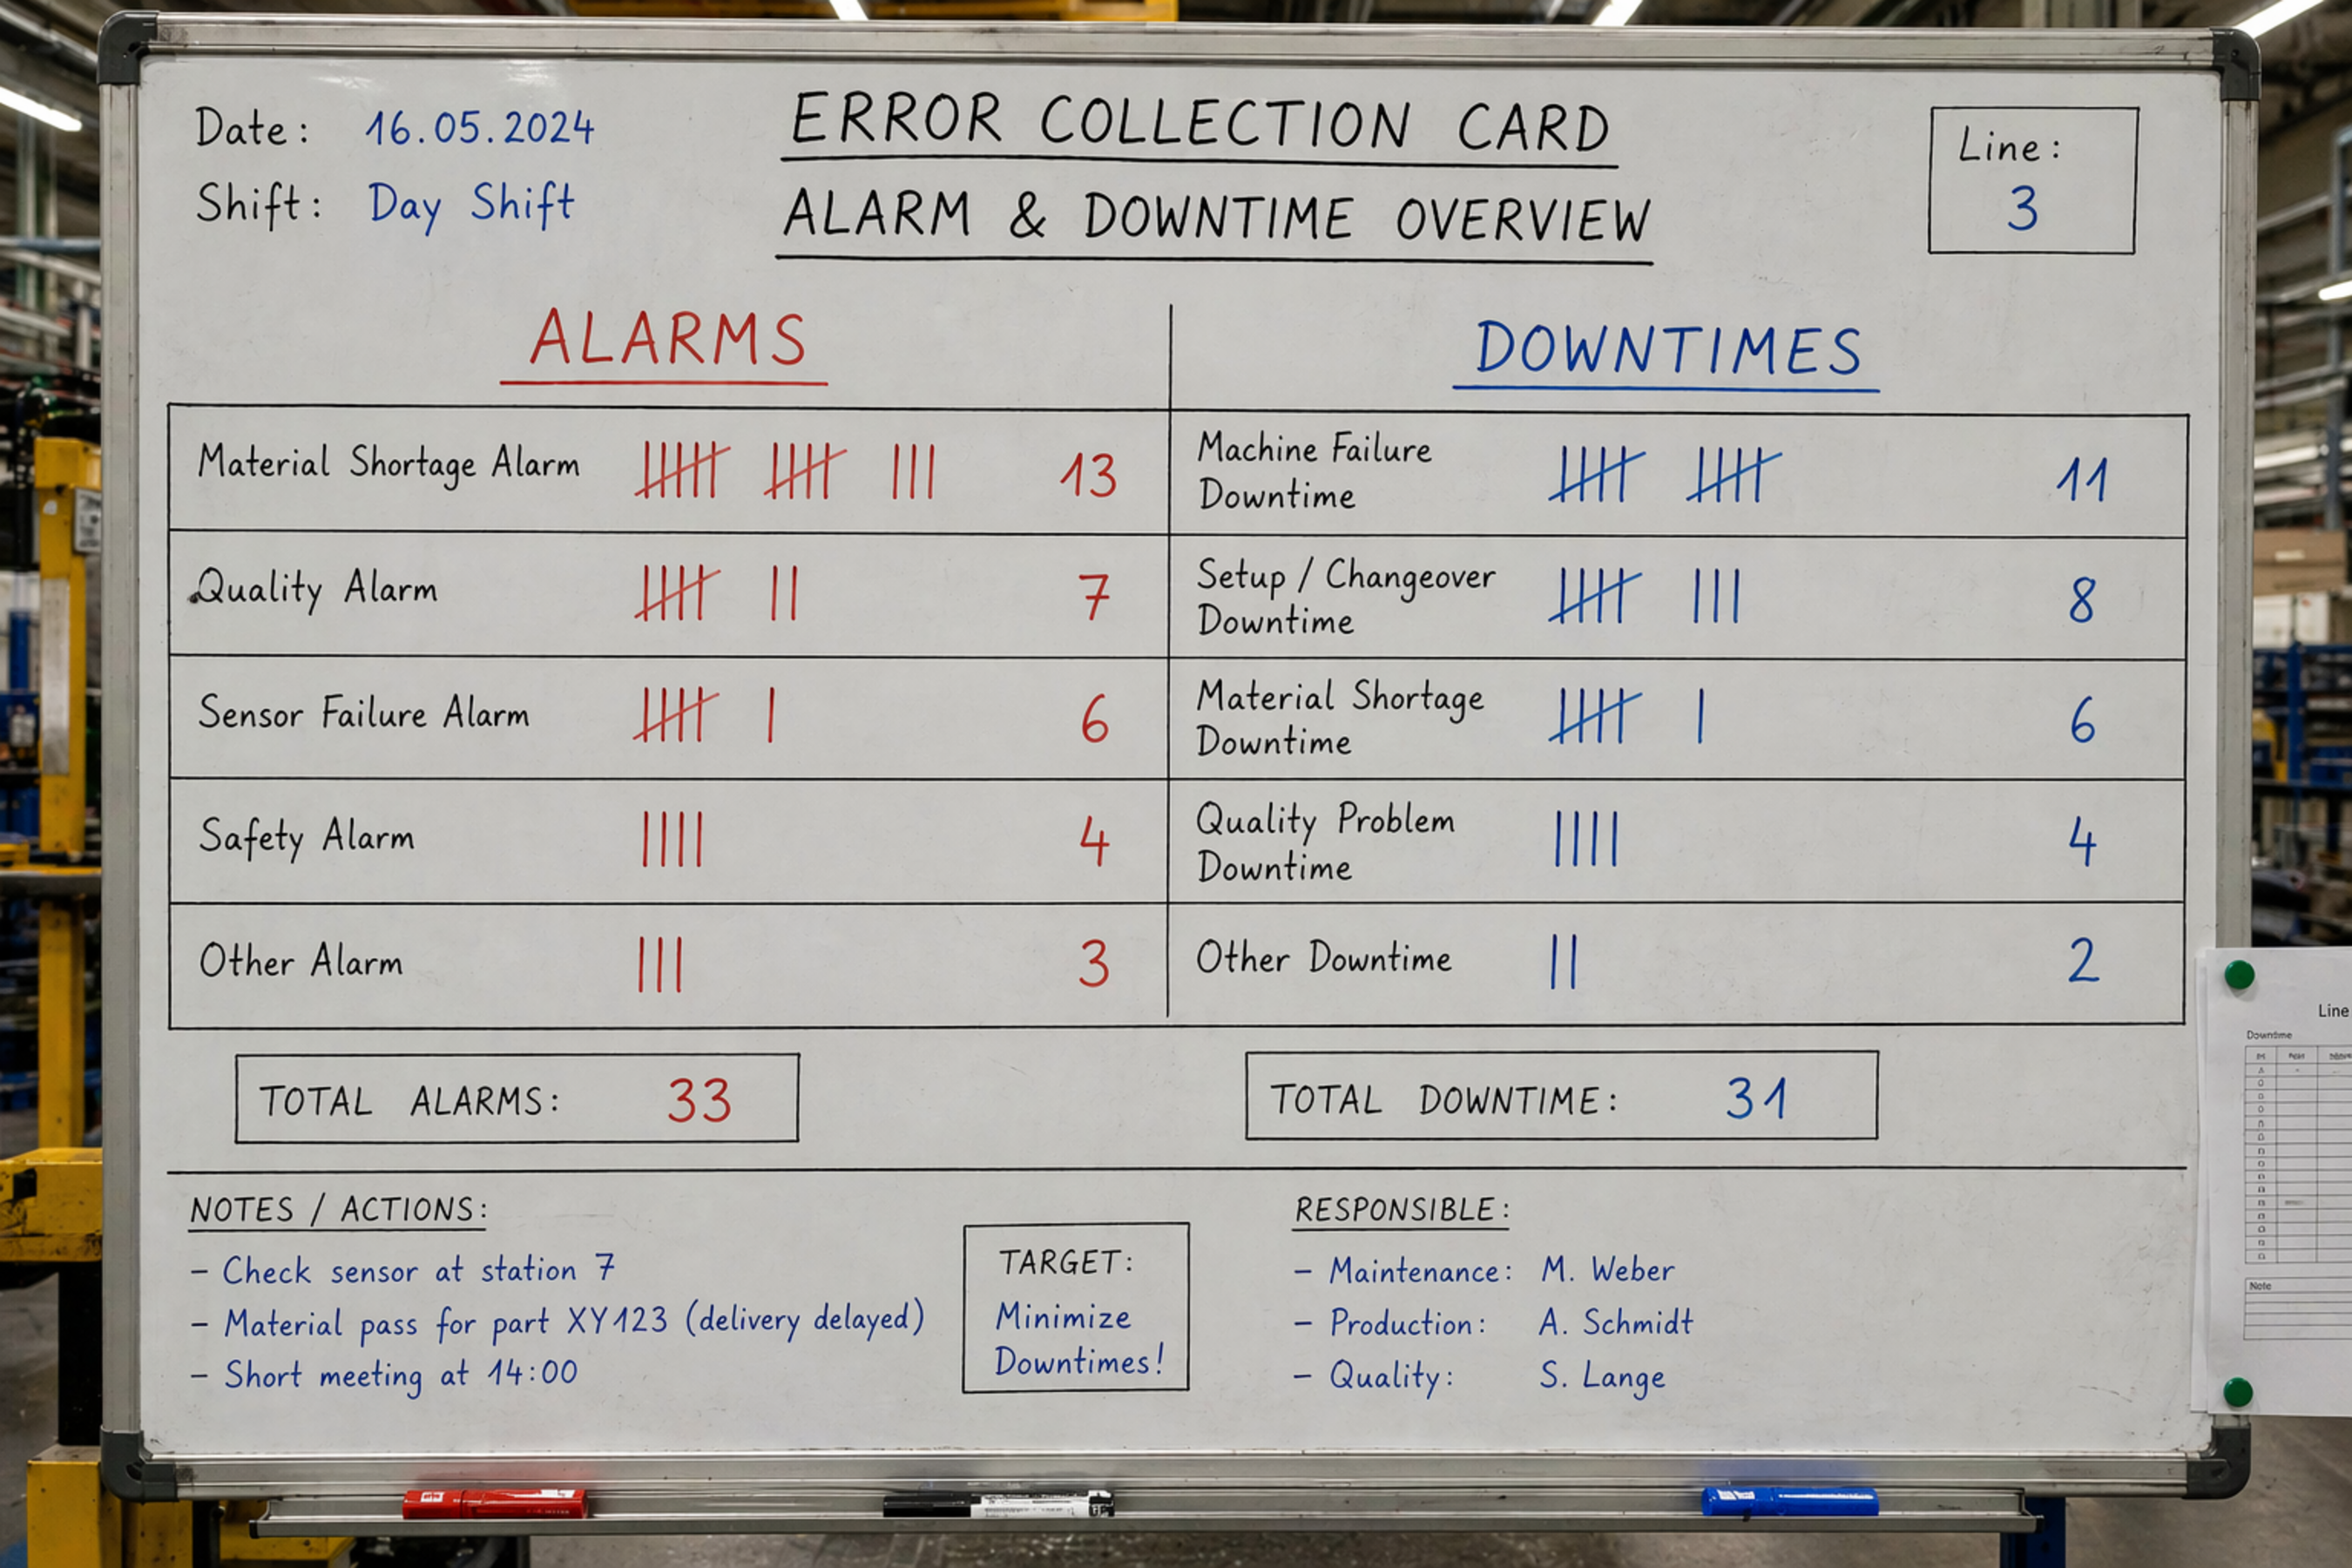 Date: 16.05.2024
Shift: Day Shift
ERROR COLLECTION CARD
ALARM & DOWNTIME OVERVIEW
Line:
3
ALARMS
Material Shortage Alarm 13
Quality Alarm 7
Sensor Failure Alarm 6
Safety Alarm 4
Other Alarm 3
TOTAL ALARMS: 33
DOWNTIMES
Machine Failure
Downtime 11
Setup / Changeover
Downtime 8
Material Shortage
Downtime 6
Quality Problem
Downtime 4
Other Downtime 2
TOTAL DOWNTIME: 31
NOTES / ACTIONS:
– Check sensor at station 7
– Material pass for part XY123 (delivery delayed)
– Short meeting at 14:00
TARGET:
Minimize
Downtimes!
RESPONSIBLE:
– Maintenance: M. Weber
– Production: A. Schmidt
– Quality: S. Lange
Line
Downtime
Note